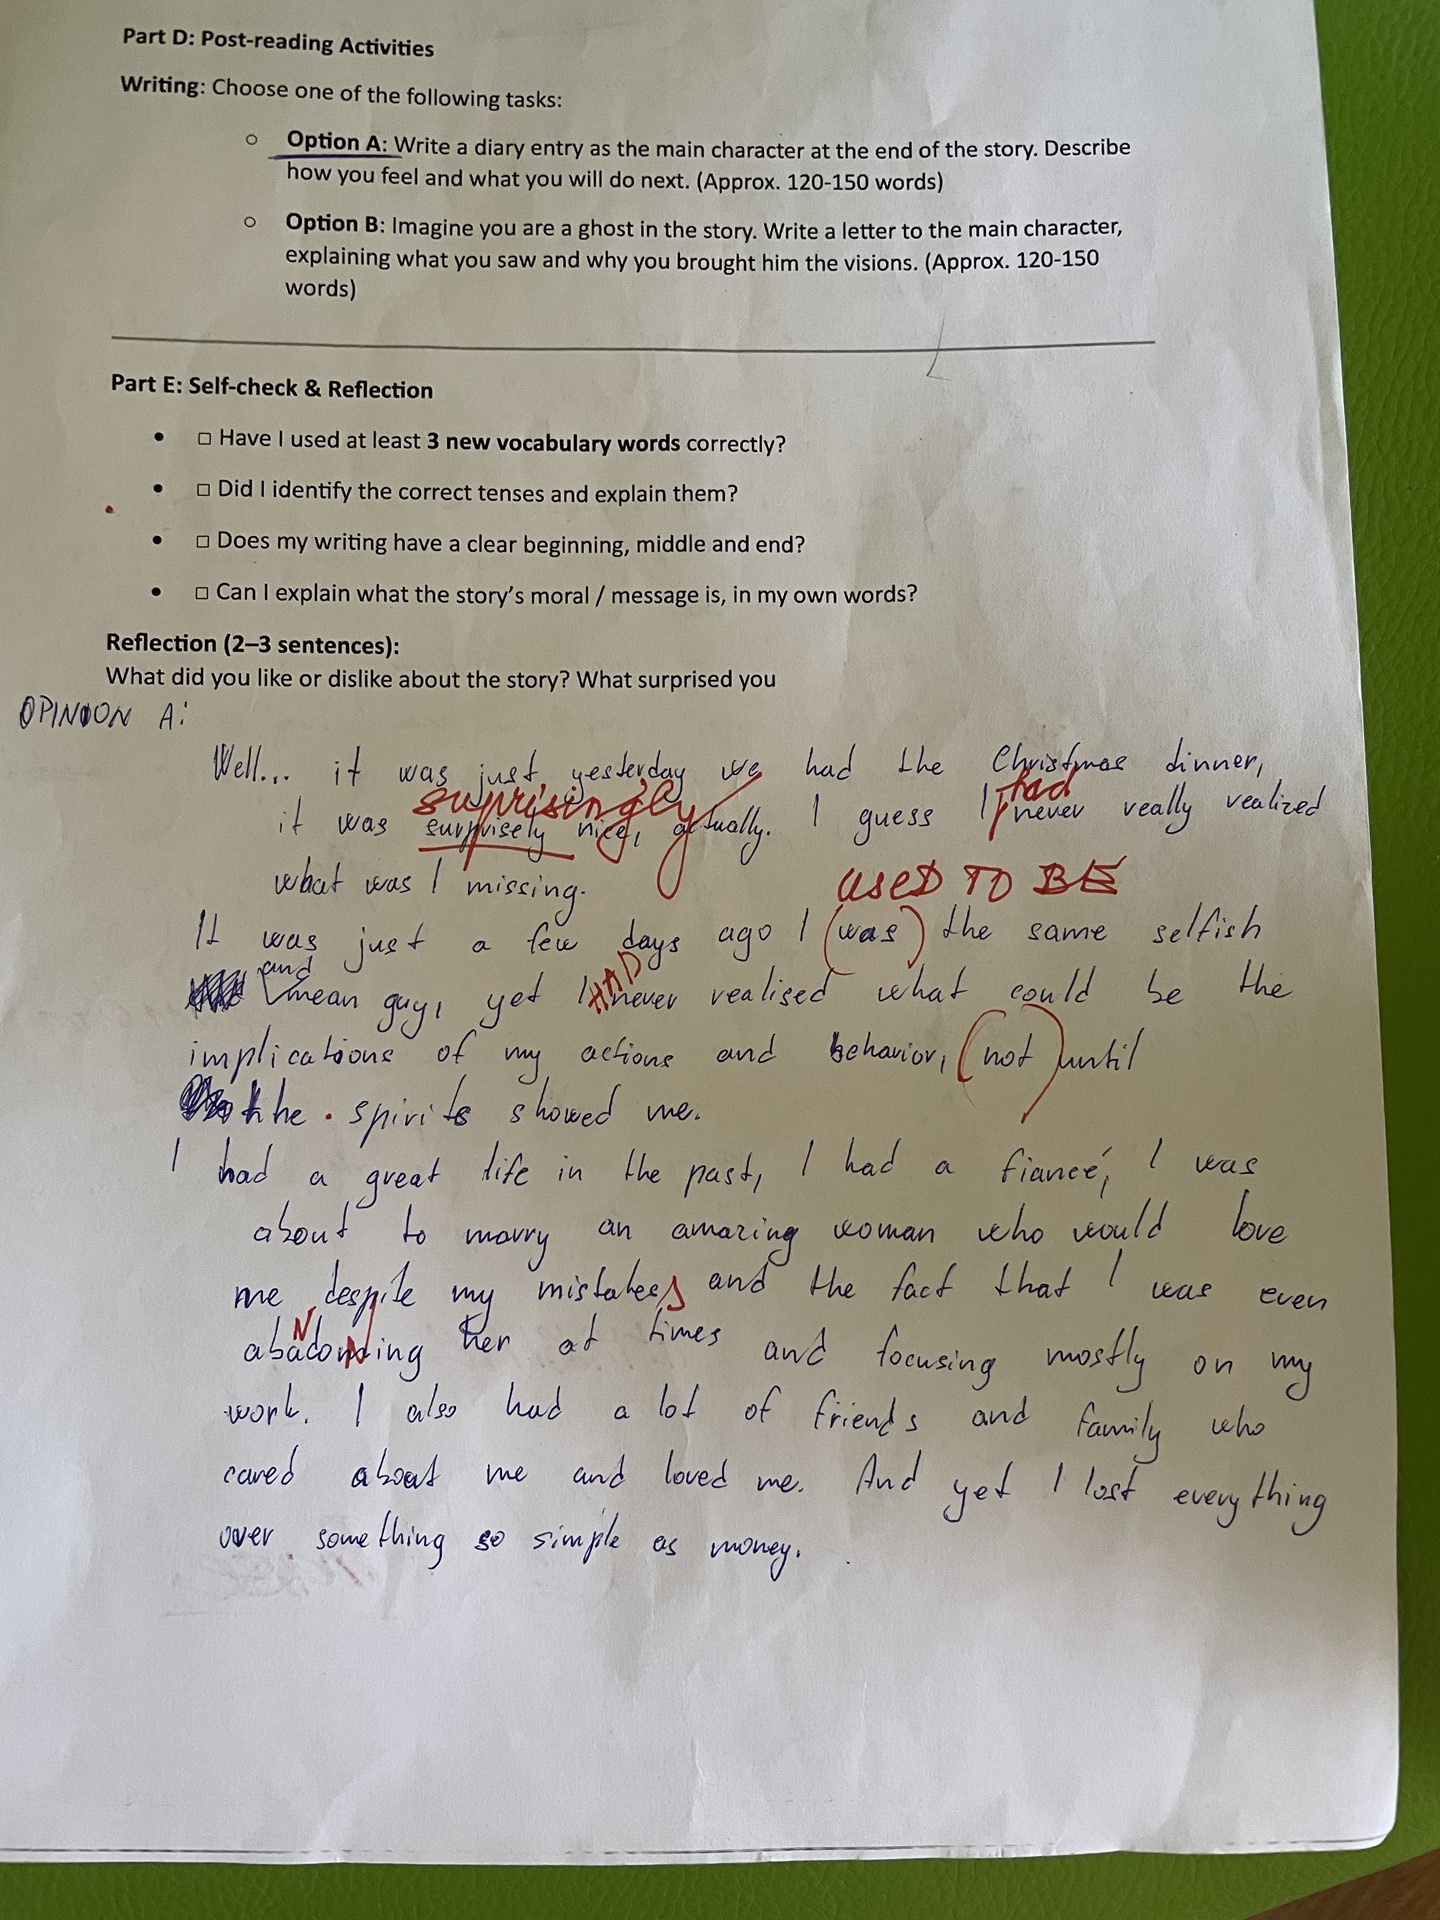 Part D: Post-reading Activities
Writing: Choose one of the following tasks:
○ Option A: Write a diary entry as the main character at the end of the story. Describe
how you feel and what you will do next. (Approx. 120-150 words)
○ Option B: Imagine you are a ghost in the story. Write a letter to the main character,
explaining what you saw and why you brought him the visions. (Approx. 120-150
words)
Part E: Self-check & Reflection
• □ Have I used at least 3 new vocabulary words correctly?
• □ Did I identify the correct tenses and explain them?
• □ Does my writing have a clear beginning, middle and end?
• □ Can I explain what the story's moral / message is, in my own words?
Reflection (2–3 sentences):
What did you like or dislike about the story? What surprised you
OPINION A:
Well... it was just yesterday we had the Christmas dinner,
surprisingly had
it was surprisely nice, actually. I guess I never really realized
what was I missing.
USED TO BE
It was just a few days ago I (was) the same selfish
and HAD
mean guy, yet I never realised what could be the
implications of my actions and behavior, (not) until
the spirits showed me.
I had a great life in the past, I had a fiancé, I was
about to marry an amazing woman who would love
me despite my mistakes and the fact that I was even
N N
abadonding her at times and focusing mostly on my
work. I also had a lot of friends and family who
cared about me and loved me. And yet I lost everything
over something so simple as money.